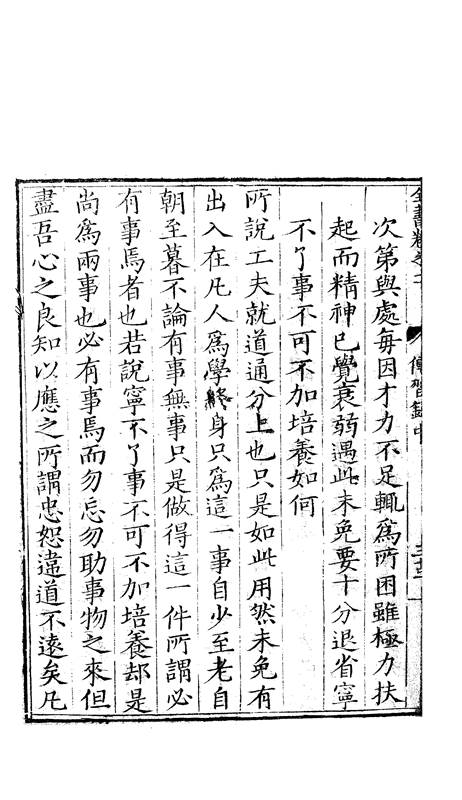 全書卷之二　傳習錄中
次第與處每因才力不足輒爲所困雖極力扶
起而精神已覺衰弱遇此未免要十分退省寧
不了事不可不加培養如何
所說工夫就道通分上也只是如此用然未免有
出入在凡人爲學終身只爲這一事自少至老自
朝至暮不論有事無事只是做得這一件所謂必
有事焉者也若說寧不了事不可不加培養却是
尚爲兩事也必有事焉而勿忘勿助事物之來但
盡吾心之良知以應之所謂忠恕違道不遠矣凡